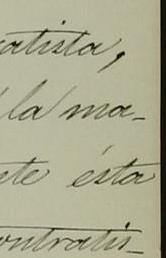 atista,
la ma-
te ésta
ontratis-